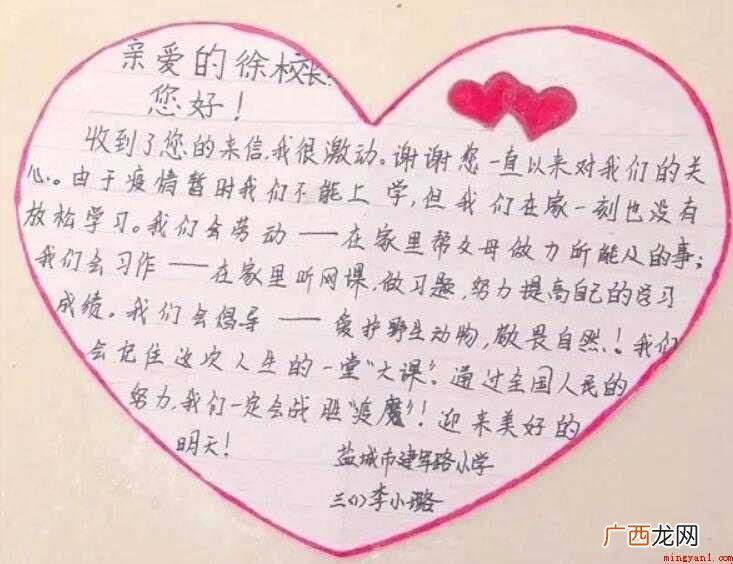 亲爱的徐校长:
您好!
收到了您的来信,我很激动。谢谢您一直以来对我们的关
心。由于疫情暂时我们不能上学,但我们在家一刻也没有
放松学习。我们会劳动——在家里帮父母做力所能及的事;
我们会习作——在家里听网课,做习题,努力提高自己的学习
成绩。我们会倡导——爱护野生动物,敬畏自然!我们
会记住这次人生的一堂“大课”。通过全国人民的
努力,我们一定会战胜“疫魔”!迎来美好的
明天!
盐城市建军路小学
三(1)李小璐
广西龙网
mingyan1.com